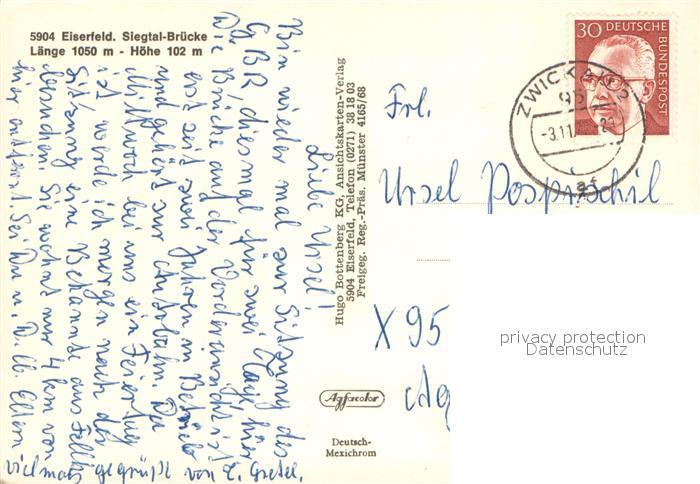 5904 Eiserfeld. Siegtal-Brücke
Länge 1050 m - Höhe 102 m
Liebe Ursel!
Bin wieder mal zur Sitzung des
GBR, diesmal für zwei Tage, hier.
Die Brücke auf der Vorderansicht ist
erst seit zwei Jahren in Betrieb
und gehört zur Autobahn. Da
Mittwoch bei uns ein Feiertag
ist, werde ich morgen nach der
Sitzung eine Bekannte aus
besuchen. Sie wohnt nur 4 km von
hier entfernt. Sei Du u. D. lb. Eltern
vielmals gegrüßt von T. Gretel.
Hugo Bottenberg KG, Ansichtskarten-Verlag
5904 Eiserfeld, Telefon (0271) 38 18 03
Freigeg. Reg.-Präs. Münster 4165/68
Agfacolor
Deutsch-
Mexichrom
30 DEUTSCHE
BUNDESPOST
ZWICKAU 2
95
-3.11
Frl.
Ursel Pospischil
X 95
privacy protection
Datenschutz